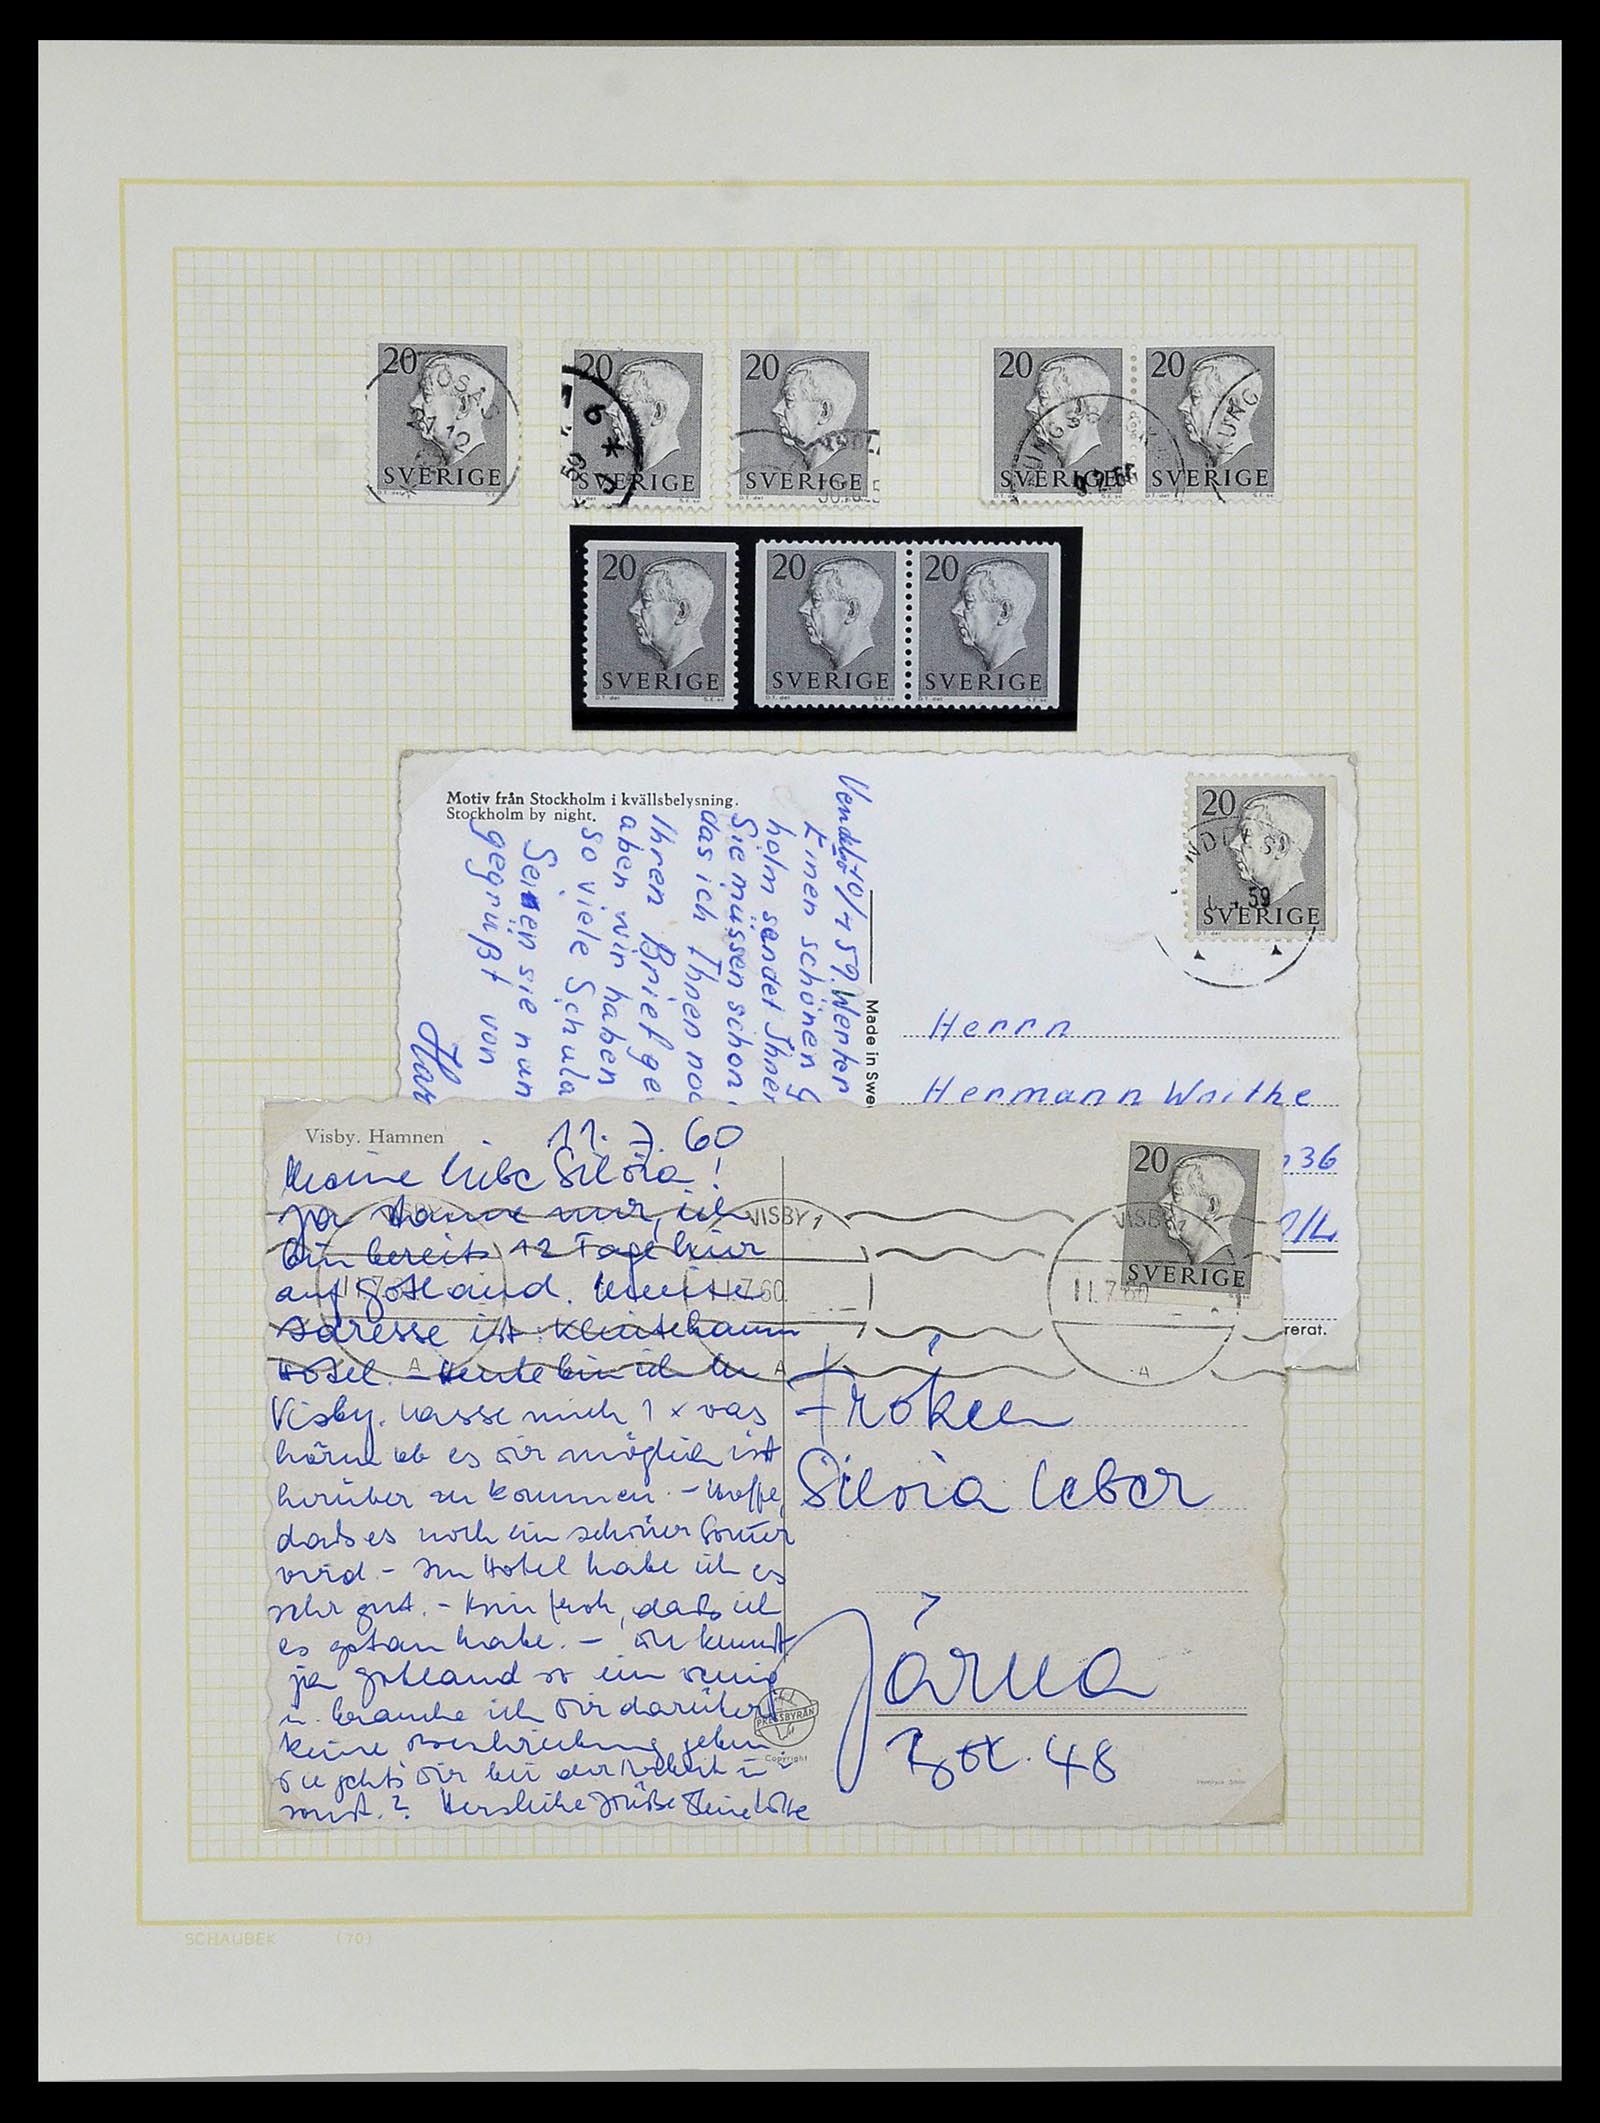 20
SVERIGE
20
SVERIGE
20
SVERIGE
20
SVERIGE
20
SVERIGE
20
SVERIGE
20
SVERIGE
20
SVERIGE
Motiv från Stockholm i kvällsbelysning.
Stockholm by night.
10/1 59. Werter
Einen schönen G
holm sendet Ihnen
Sie müssen schon
das ich Ihnen noc
Ihren Brief ge
aben wir haben
so viele Schula
Seien sie nun
gegrüßt von
Made in Swe
20
SVERIGE
59
Herrn
Hermann
36
rerat.
Visby. Hamnen
11. 7. 60
Meine liebe Silvia!
ja staune nur, ich
bin bereits 12 Tage hier
auf Gotland. Meine
Adresse ist: Klintehamn
Hotel. – Heute bin ich in
Visby. Lasse mich 1 x was
hören ob es dir möglich ist
herüber zu kommen. – Hoffe,
dass es noch ein schöner Sommer
wird – Im Hotel habe ich es
sehr gut. – Bin froh, dass ich
es getan habe. – Du kennst
ja Gotland so ein wenig
u. brauche ich dir darüber
keine Beschreibung geben.
Wie geht's dir bei der Arbeit u.
sonst? Herzliche Grüße Deine Lotte
VISBY 1
11.7.60
A
20
SVERIGE
VISBY 1
11.7.60
A
Fröken
Silvia Leber
Järna
Box. 48
PRESSBYRÅN
Copyright
SCHAUBEK (70)